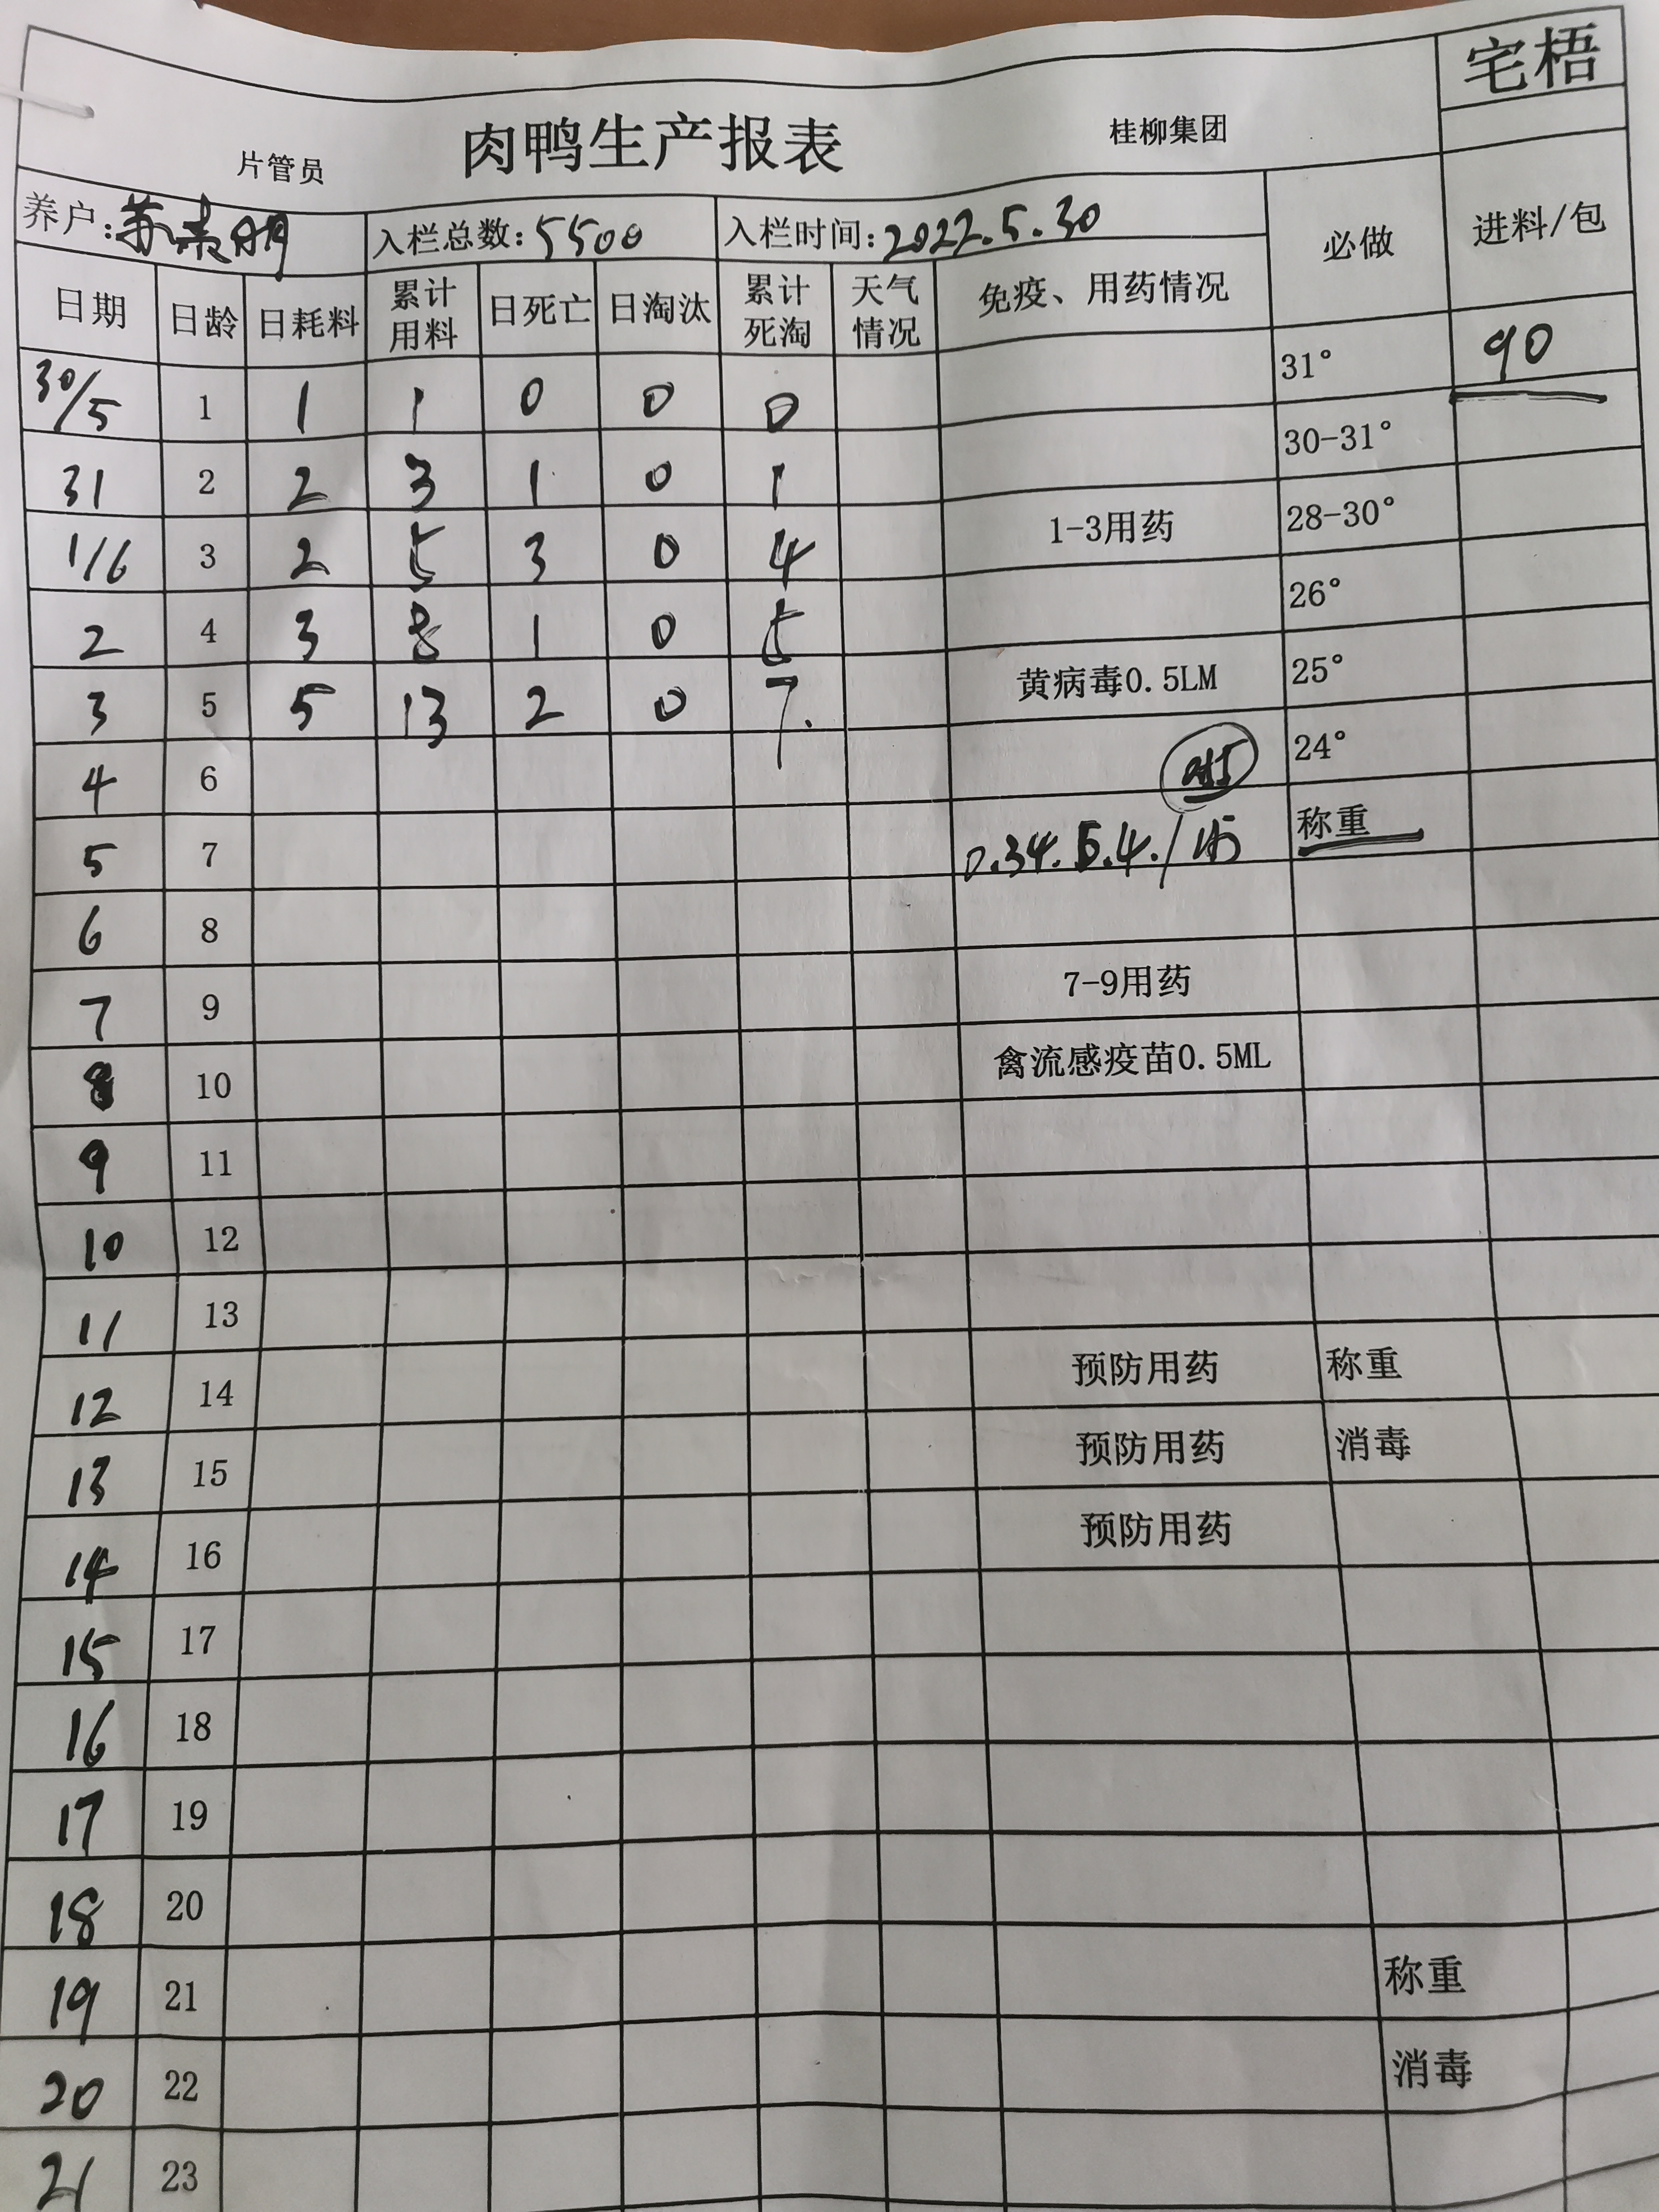 宅梧
片管员 肉鸭生产报表 桂柳集团
养户: 入栏总数: 5500 入栏时间: 2022.5.30 必做 进料/包
日期 日龄 日耗料 累计用料 日死亡 日淘汰 累计死淘 天气情况 免疫、用药情况
30/5 1 1 1 0 0 0 31° 90
31 2 2 3 1 0 1 30-31°
1/6 3 2 5 3 0 4 1-3用药 28-30°
2 4 3 8 1 0 5 26°
3 5 5 13 2 0 7. 黄病毒0.5LM 25°
4 6 24°
5 7 称重
6 8
7 9 7-9用药
8 10 禽流感疫苗0.5ML
9 11
10 12
11 13
12 14 预防用药 称重
13 15 预防用药 消毒
14 16 预防用药
15 17
16 18
17 19
18 20
19 21 称重
20 22 消毒
21 23